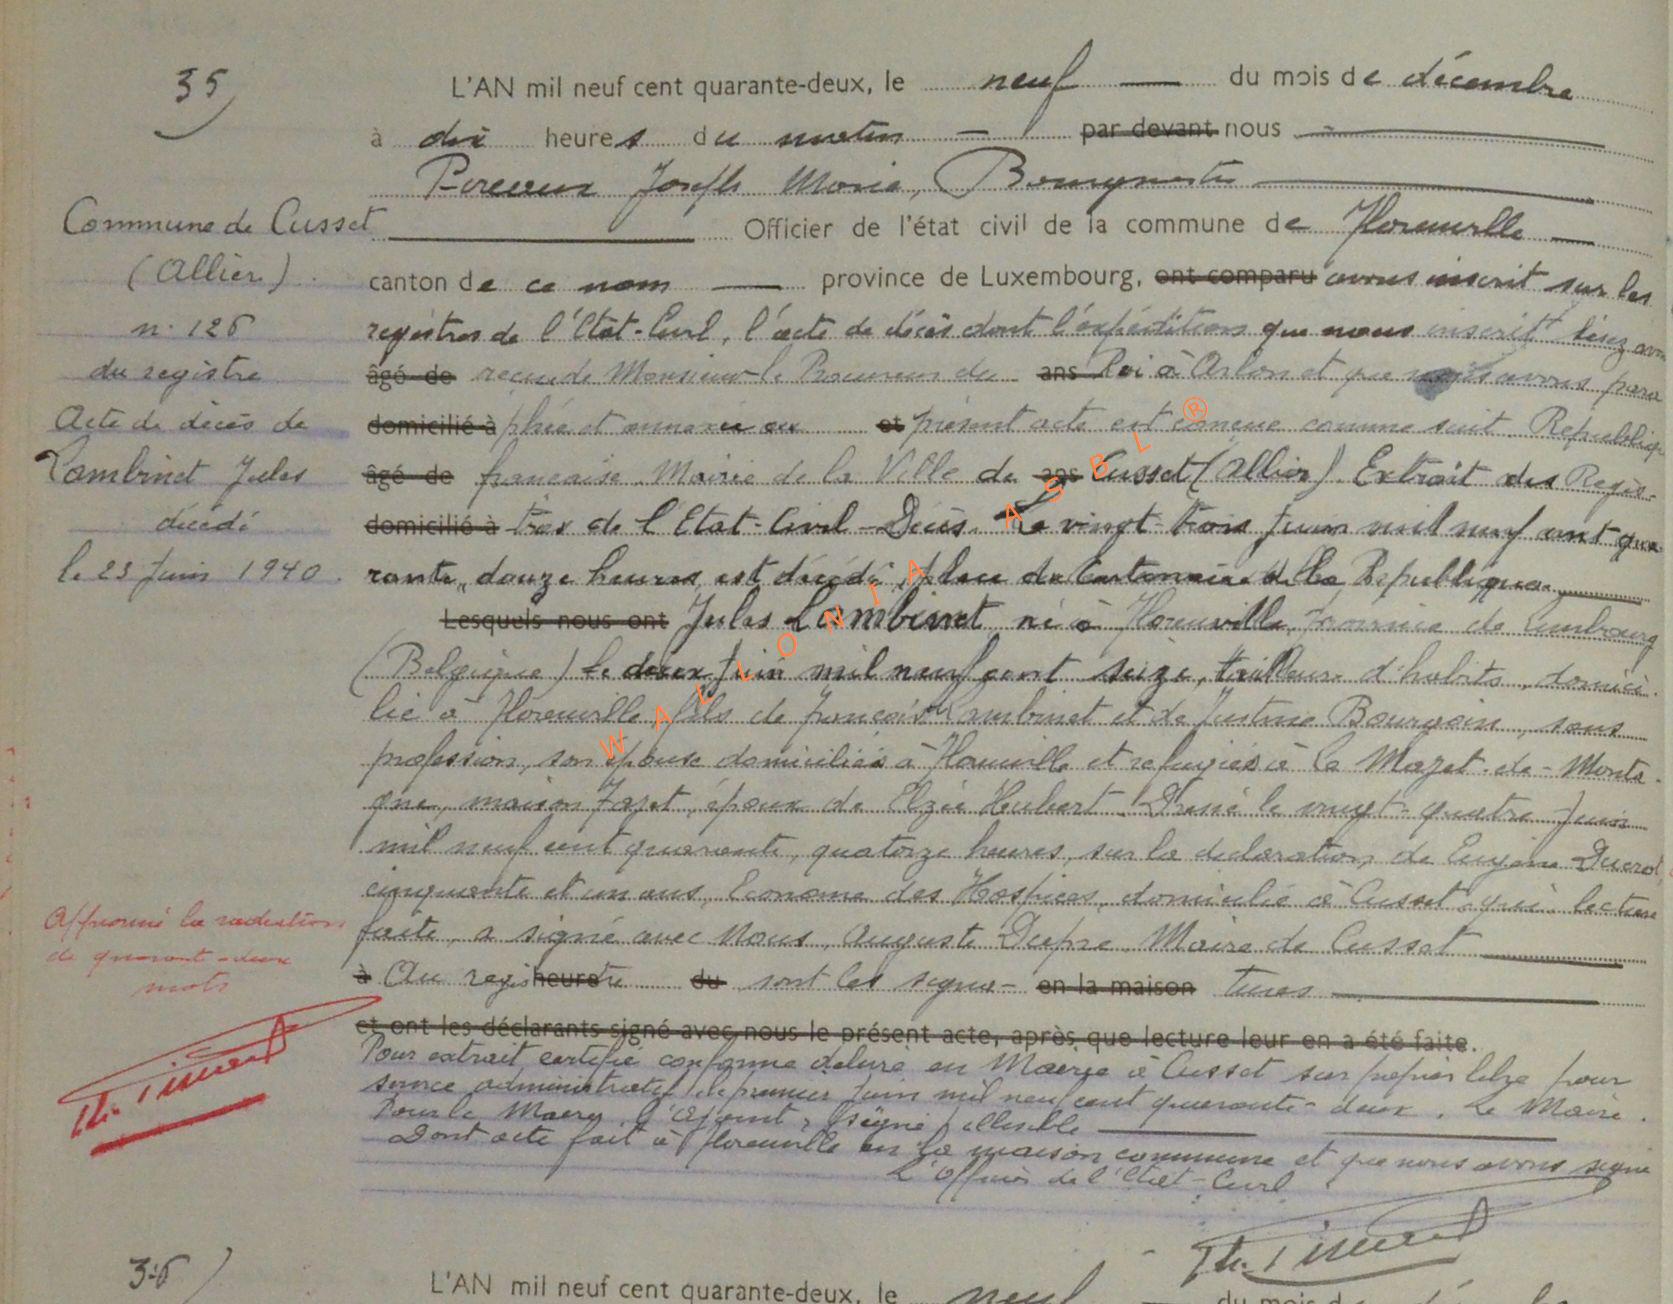 35
L'AN mil neuf cent quarante-deux, le neuf — du mois de décembre
à dix heures du matin — par devant nous —
Joseph Marie, Bourgmestre
Commune de Cusset
Officier de l'état civil de la commune de Florenville —
(Allier)
canton de ce nom — province de Luxembourg, ont comparu avons inscrit sur les
n. 126
registres de l'Etat-Civil, l'acte de décès dont l'expédition que nous inscrit lisez avons
du registre
âgé de reçue de Monsieur le Procureur du ans Roi à Arlon et que nous avons para
Acte de décès de
domicilié à phée et annexée au et présent acte est conçue comme suit. République
Lambinet Jules
âgé de française. Mairie de la Ville de ans Cusset (Allier). Extrait des Regis-
décédé
domicilié à tres de l'Etat-Civil-Décès. Le vingt-trois Juin mil neuf cent qua-
le 23 Juin 1940.
rante, douze heures, est décédé, place du Centenaire de la République.
Lesquels nous ont Jules Lambinet né à Florenville, Province de Luxembourg
(Belgique) le deux Juin mil neuf cent seize, tailleur d'habits, domici-
lié à Florenville fils de François Lambinet et de Justine Bourgoin, sans
profession, son épouse domiciliés à Florenville et refugiés à la Mazet-de-Monta-
gne, maison Jazet, époux de Elzée Hubert. Dressé le vingt-quatre Juin
mil neuf cent quarante, quatorze heures, sur la déclaration de Eugène Ducrot,
cinquante et un ans, Econome des Hospices, domicilié à Cusset qui lecture
faite, a signé avec Nous, Auguste Dupre, Maire de Cusset
Approuvé la radiation
de quarant-deux
mots
à Au regisheuretre du sont les signa- en la maison tures —
et ont les déclarants signé avec nous le présent acte, après que lecture leur en a été faite.
Pour extrait certifié conforme délivré en Mairie à Cusset sur papier libre pour
service administratif, le premier Juin mil neuf cent quarante-deux. Le Maire.
Pour le Maire, l'Adjoint, (signé) illisible
Dont acte fait à Florenville en la maison commune et que nous avons signé
L'Officier de l'Etat-Civil
WALLONIA ASBL®
36
L'AN mil neuf cent quarante-deux, le neuf — du mois de